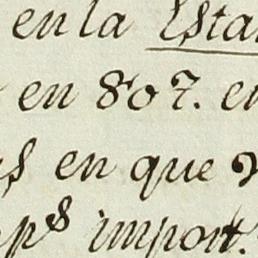 en la Esta
en 807. en
en que
pˢ import.